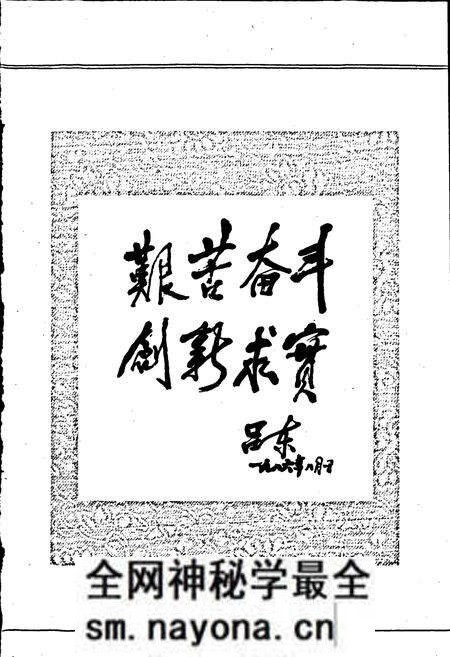 艱苦奋斗
創新求實
吕东
一九八六年八月
全网神秘学最全
sm.nayona.cn